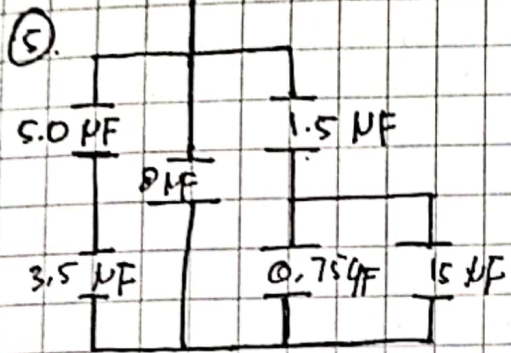 5.
5.0 μF
1.5 μF
8 μF
3.5 μF
0.75 μF
15 μF